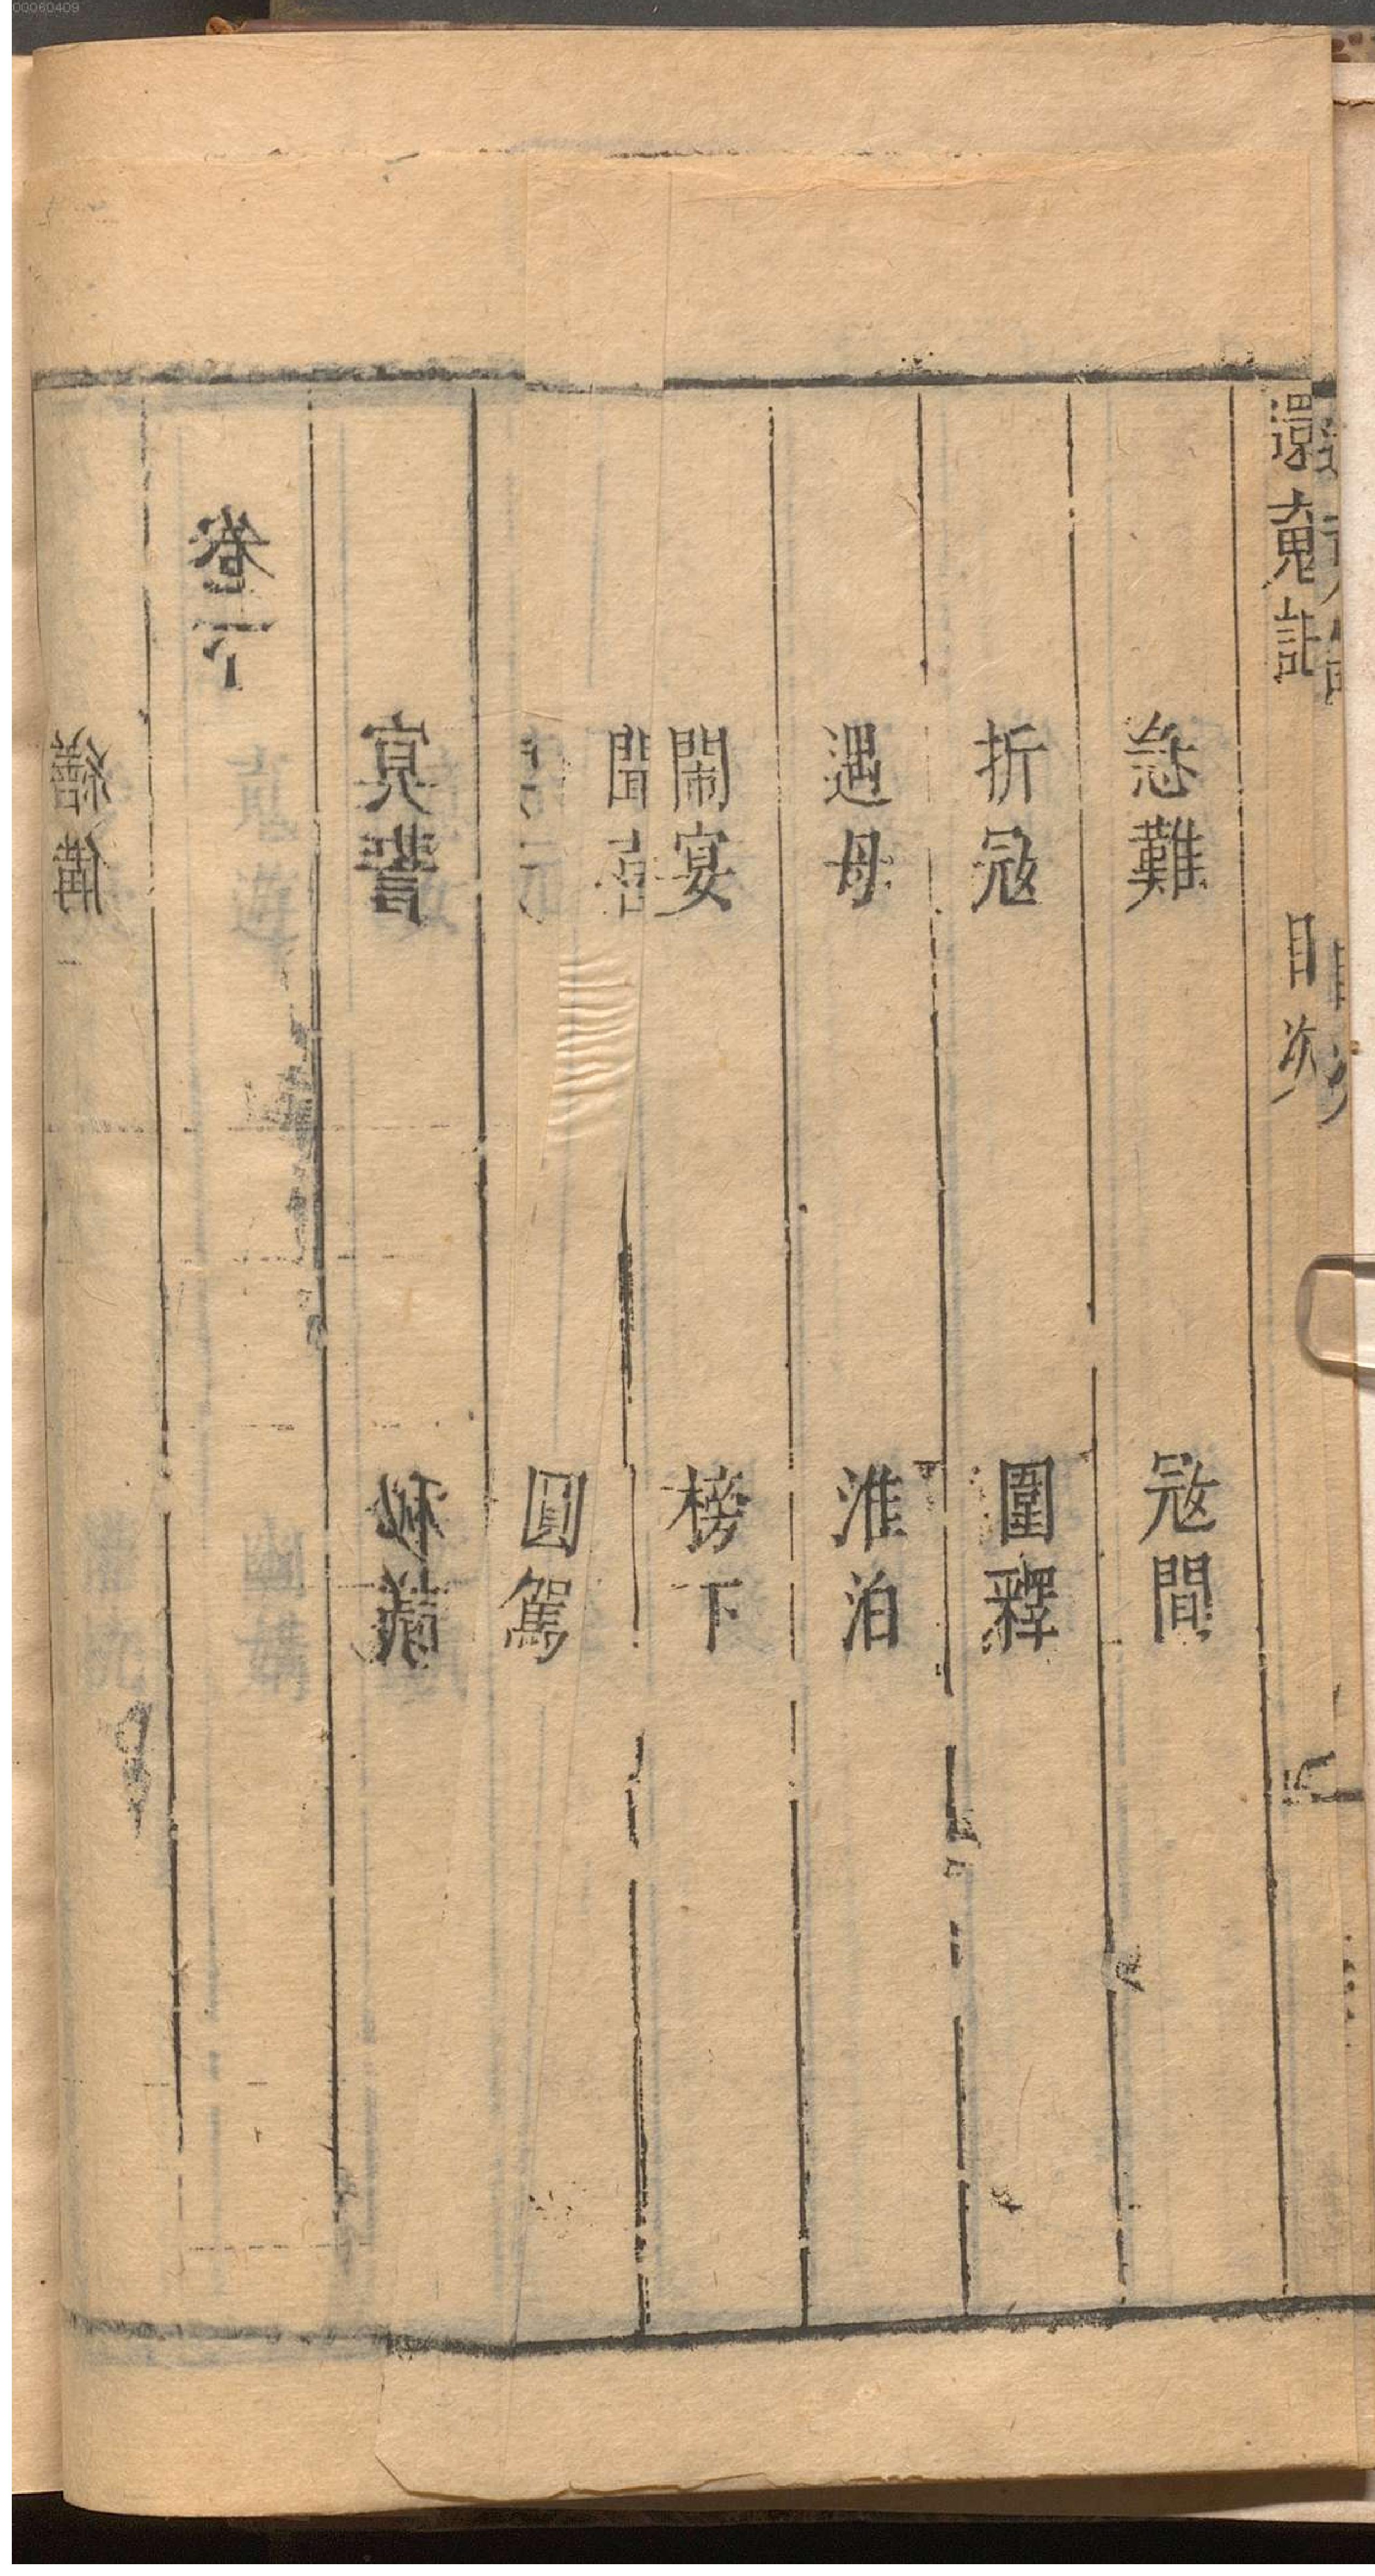 00060409
還魂記
目次
急難 冦間
折冦 圍釋
遇母 淮泊
鬧宴 榜下
聞喜 圓駕
冥誓 秘議
卷下
繕備